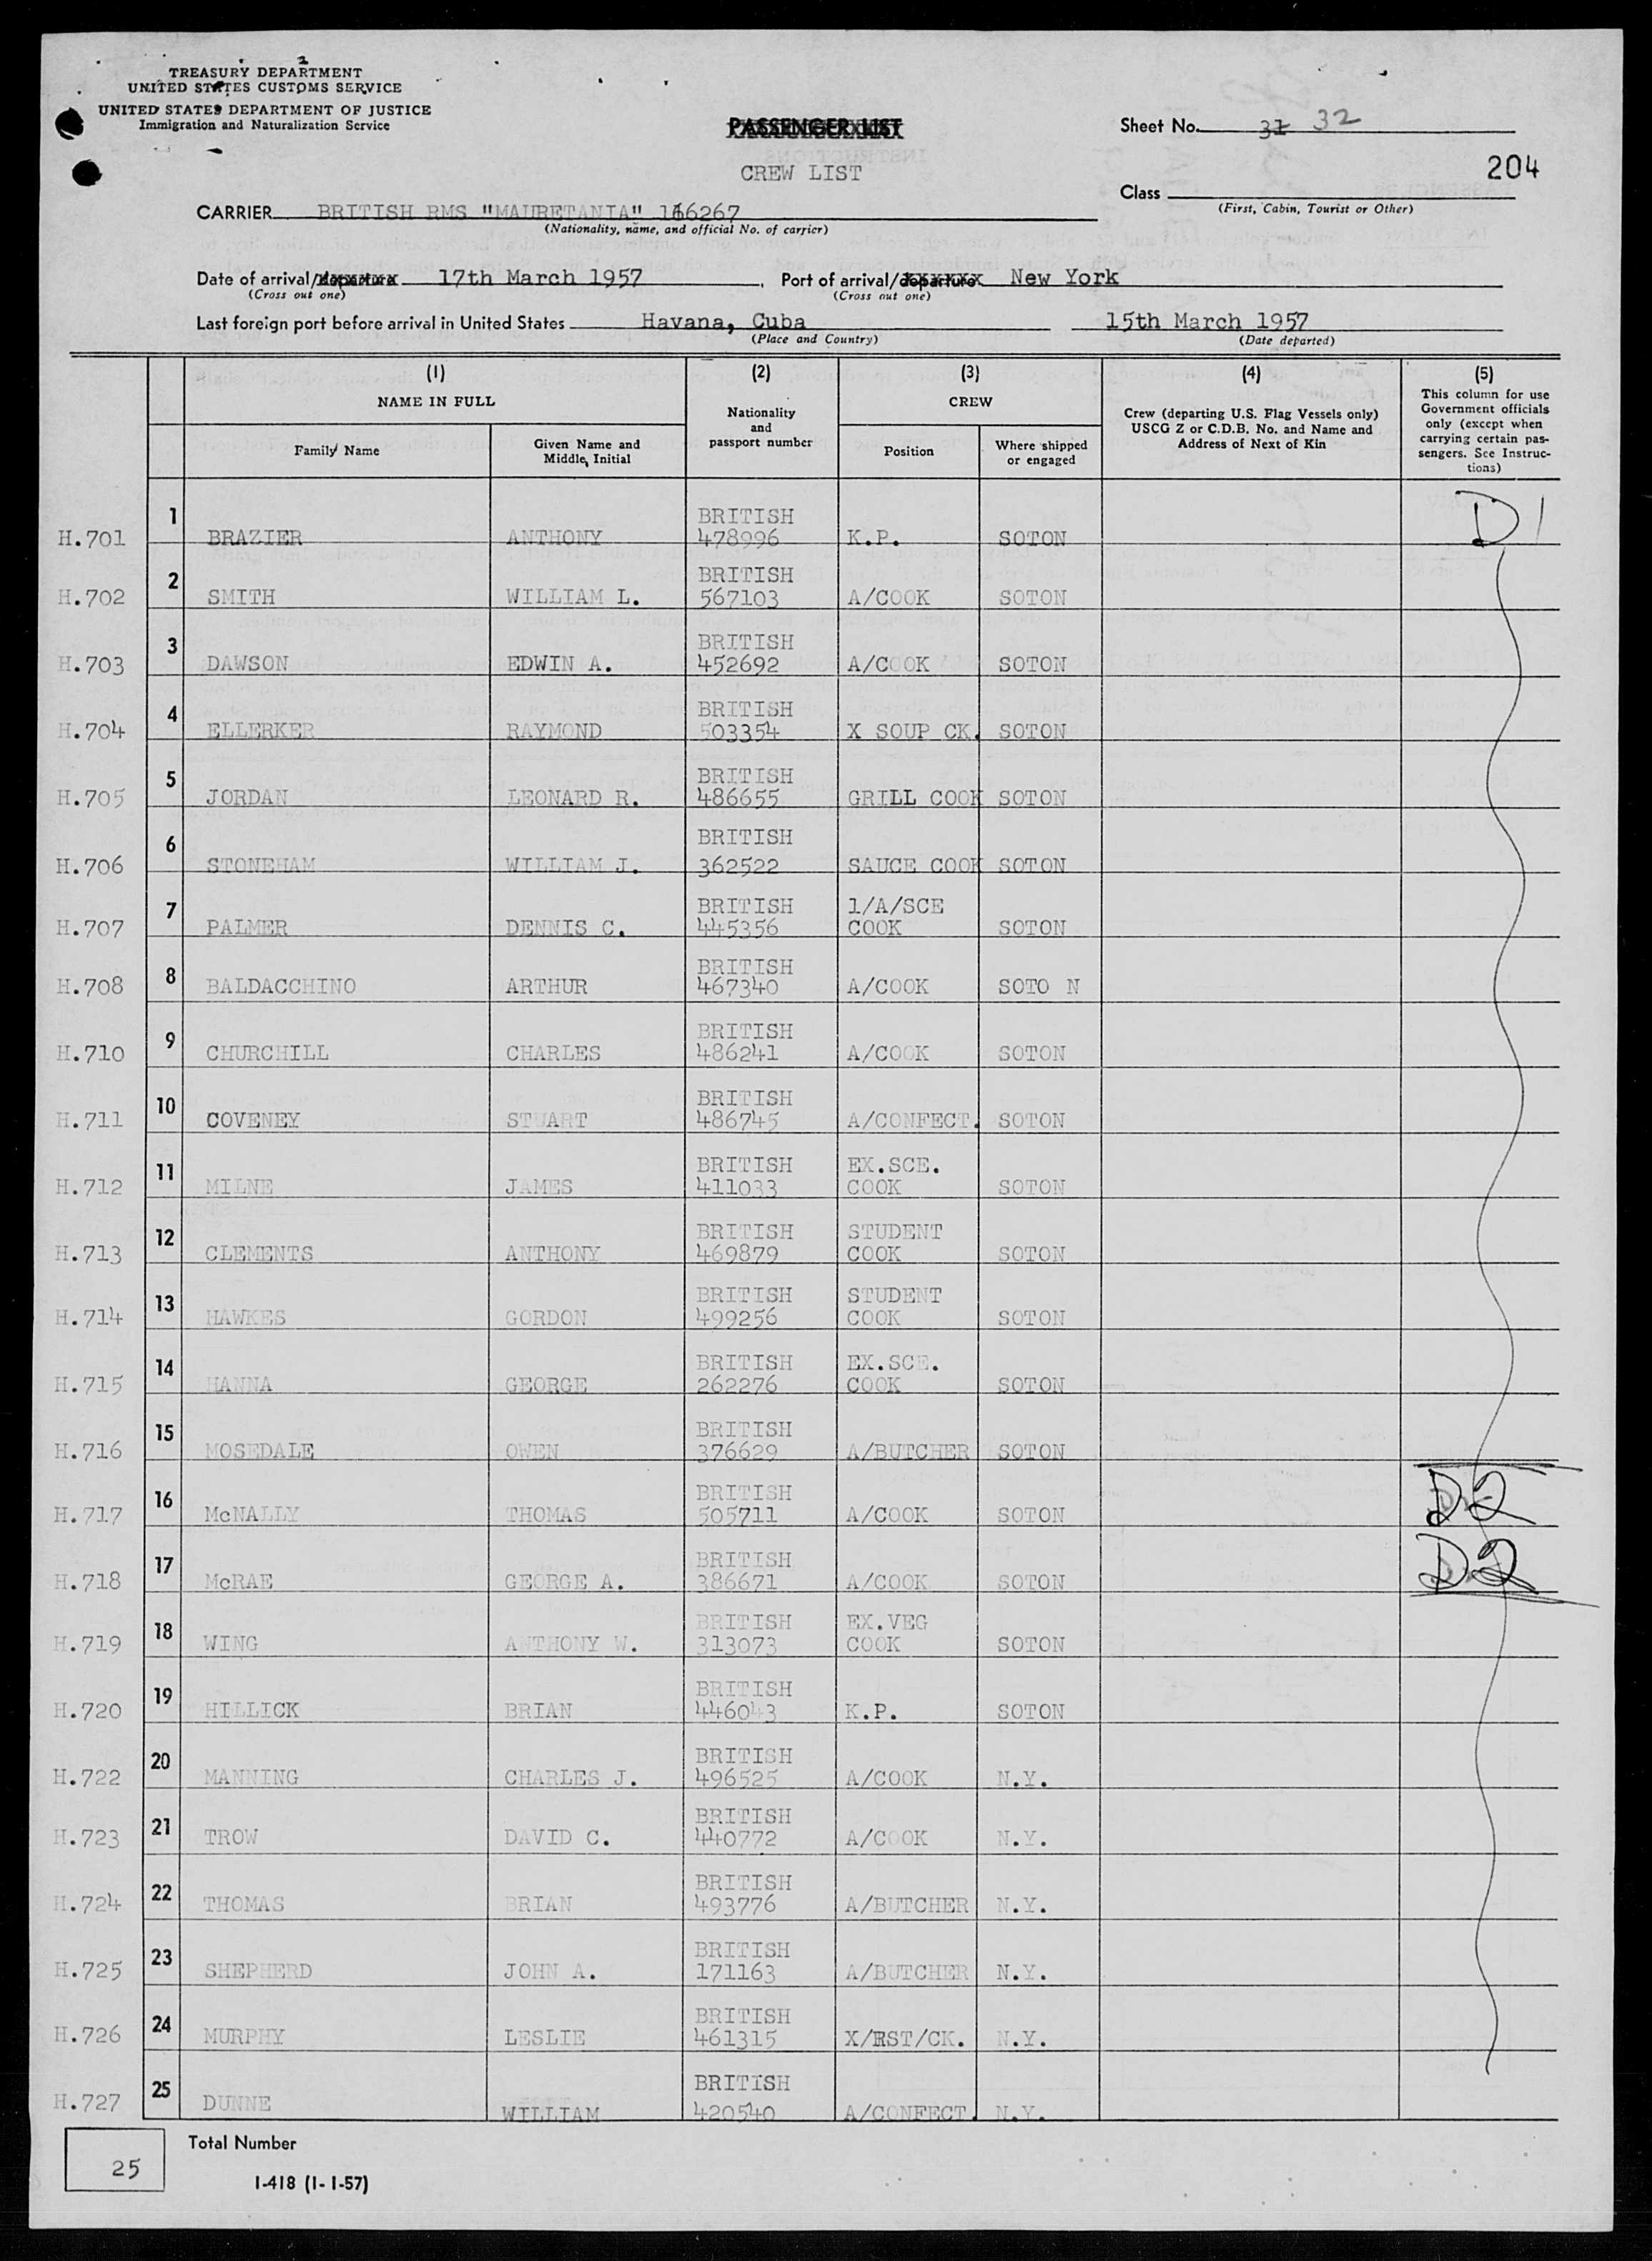 TREASURY DEPARTMENT
UNITED STATES CUSTOMS SERVICE
UNITED STATES DEPARTMENT OF JUSTICE
Immigration and Naturalization Service
PASSENGER LIST
CREW LIST
Sheet No. 31 32
204
Class
(First, Cabin, Tourist or Other)
CARRIER BRITISH RMS "MAURETANIA" 166267
(Nationality, name, and official No. of carrier)
Date of arrival/departure 17th March 1957. Port of arrival/departure New York
(Cross out one) (Cross out one)
Last foreign port before arrival in United States Havana, Cuba 15th March 1957
(Place and Country) (Date departed)
(1) (2) (3) (4) (5)
NAME IN FULL Nationality and passport number CREW Crew (departing U.S. Flag Vessels only) USCG Z or C.D.B. No. and Name and Address of Next of Kin This column for use Government officials only (except when carrying certain passengers. See Instructions)
Family Name Given Name and Middle Initial Position Where shipped or engaged
H.701 1 BRAZIER ANTHONY BRITISH 478996 K.P. SOTON D1
H.702 2 SMITH WILLIAM L. BRITISH 567103 A/COOK SOTON
H.703 3 DAWSON EDWIN A. BRITISH 452692 A/COOK SOTON
H.704 4 ELLERKER RAYMOND BRITISH 503354 X SOUP CK. SOTON
H.705 5 JORDAN LEONARD R. BRITISH 486655 GRILL COOK SOTON
H.706 6 STONEHAM WILLIAM J. BRITISH 362522 SAUCE COOK SOTON
H.707 7 PALMER DENNIS C. BRITISH 445356 1/A/SCE COOK SOTON
H.708 8 BALDACCHINO ARTHUR BRITISH 467340 A/COOK SOTO N
H.710 9 CHURCHILL CHARLES BRITISH 486241 A/COOK SOTON
H.711 10 COVENEY STUART BRITISH 486745 A/CONFECT. SOTON
H.712 11 MILNE JAMES BRITISH 411033 EX.SCE. COOK SOTON
H.713 12 CLEMENTS ANTHONY BRITISH 469879 STUDENT COOK SOTON
H.714 13 HAWKES GORDON BRITISH 499256 STUDENT COOK SOTON
H.715 14 HANNA GEORGE BRITISH 262276 EX.SCE. COOK SOTON
H.716 15 MOSEDALE OWEN BRITISH 376629 A/BUTCHER SOTON
H.717 16 McNALLY THOMAS BRITISH 505711 A/COOK SOTON D2
H.718 17 McRAE GEORGE A. BRITISH 386671 A/COOK SOTON D2
H.719 18 WING ANTHONY W. BRITISH 313073 EX.VEG COOK SOTON
H.720 19 HILLICK BRIAN BRITISH 446043 K.P. SOTON
H.722 20 MANNING CHARLES J. BRITISH 496525 A/COOK N.Y.
H.723 21 TROW DAVID C. BRITISH 440772 A/COOK N.Y.
H.724 22 THOMAS BRIAN BRITISH 493776 A/BUTCHER N.Y.
H.725 23 SHEPHERD JOHN A. BRITISH 171163 A/BUTCHER N.Y.
H.726 24 MURPHY LESLIE BRITISH 461315 X/RST/CK. N.Y.
H.727 25 DUNNE WILLIAM BRITISH 420540 A/CONFECT. N.Y.
25 Total Number
I-418 (1-1-57)